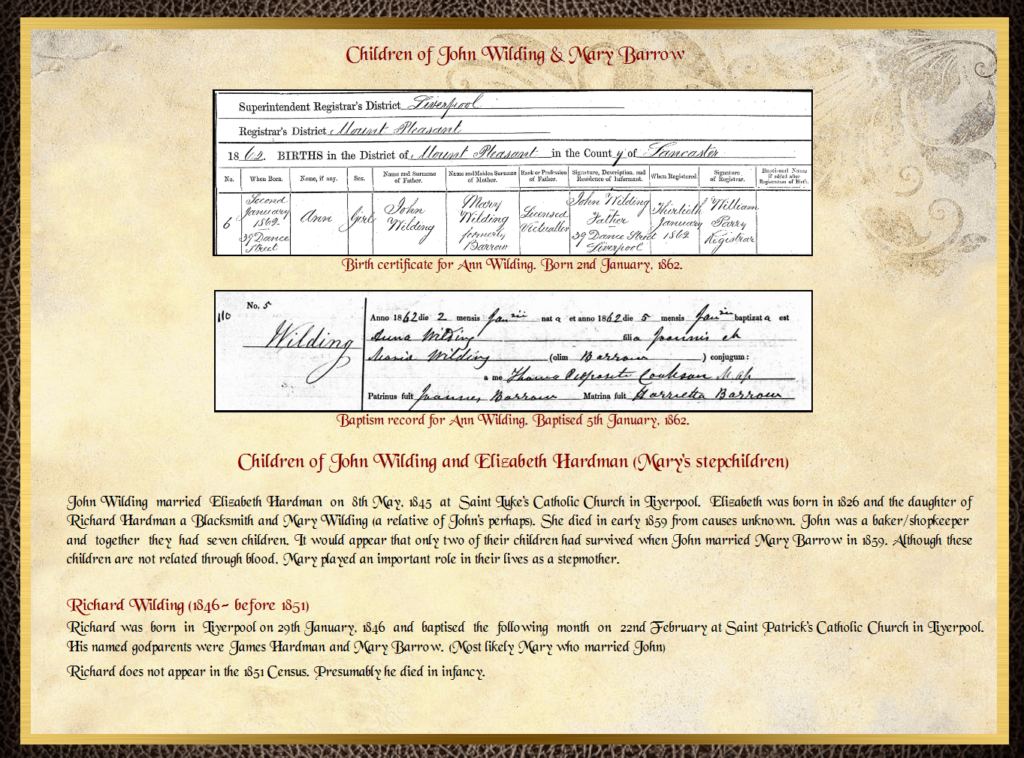 Children of John Wilding & Mary Barrow
Superintendent Registrar's District Liverpool
Registrar's District Mount Pleasant
1862. BIRTHS in the District of Mount Pleasant in the County of Lancaster
No. When Born. Name, if any. Sex. Name and Surname of Father. Name and Maiden Surname of Mother. Rank or Profession of Father. Signature, Description, and Residence of Informant. When Registered. Signature of Registrar. Baptismal Name if added after Registration of Birth.
6 Second January 1862. 39 Dance Street Ann Girl John Wilding Mary Wilding formerly Barrow Licensed Victualler John Wilding Father 39 Dance Street Liverpool Thirtieth January 1862 William Parry Registrar
Birth certificate for Ann Wilding. Born 2nd January, 1862.
No. 5
110
Wilding
Anno 1862 die 2 mensis Janrii nata et anno 1862 die 5 mensis Janrii baptizata est
Anna Wilding filia Joannis et
Maria Wilding (olim Barrow) conjugum:
a me Thoma Cookson M. Ap
Patrinus fuit Joannes Barrow Matrina fuit Harrietta Barrow
Baptism record for Ann Wilding. Baptised 5th January, 1862.
Children of John Wilding and Elizabeth Hardman (Mary's stepchildren)
John Wilding married Elizabeth Hardman on 8th May, 1845 at Saint Luke's Catholic Church in Liverpool. Elizabeth was born in 1826 and the daughter of
Richard Hardman a Blacksmith and Mary Wilding (a relative of John's perhaps). She died in early 1859 from causes unknown. John was a baker/shopkeeper
and together they had seven children. It would appear that only two of their children had survived when John married Mary Barrow in 1859. Although these
children are not related through blood, Mary played an important role in their lives as a stepmother.
Richard Wilding (1846- before 1851)
Richard was born in Liverpool on 29th January, 1846 and baptised the following month on 22nd February at Saint Patrick's Catholic Church in Liverpool.
His named godparents were James Hardman and Mary Barrow. (Most likely Mary who married John)
Richard does not appear in the 1851 Census. Presumably he died in infancy.